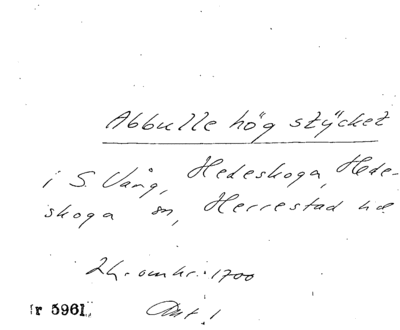 Abbulle hög stÿcket
i S. Vång, Hedeskoga, Hede-
skoga sn, Herrestad hd
Lh. omkr. 1700
r 5961. Ant. 1